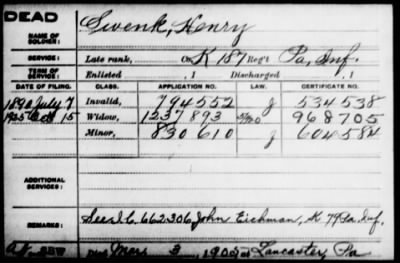 DEAD
NAME OF SOLDIER:
Swenk, Henry
SERVICE:
Late rank, Co. K 187 Reg't Pa. Inf.
TERM OF SERVICE:
Enlisted , 1 Discharged , 1
DATE OF FILING. CLASS. APPLICATION NO. LAW. CERTIFICATE NO.
1890 July 7 Invalid, 794552 J 534538
1925 Oct 15 Widow, 1237893 968705
Minor, 830610 J 604584
ADDITIONAL SERVICES:
REMARKS:
See I.C. 662306 John Eichman, K 79 Pa. Inf.
Died Mar 3, 1905 at Lancaster, Pa